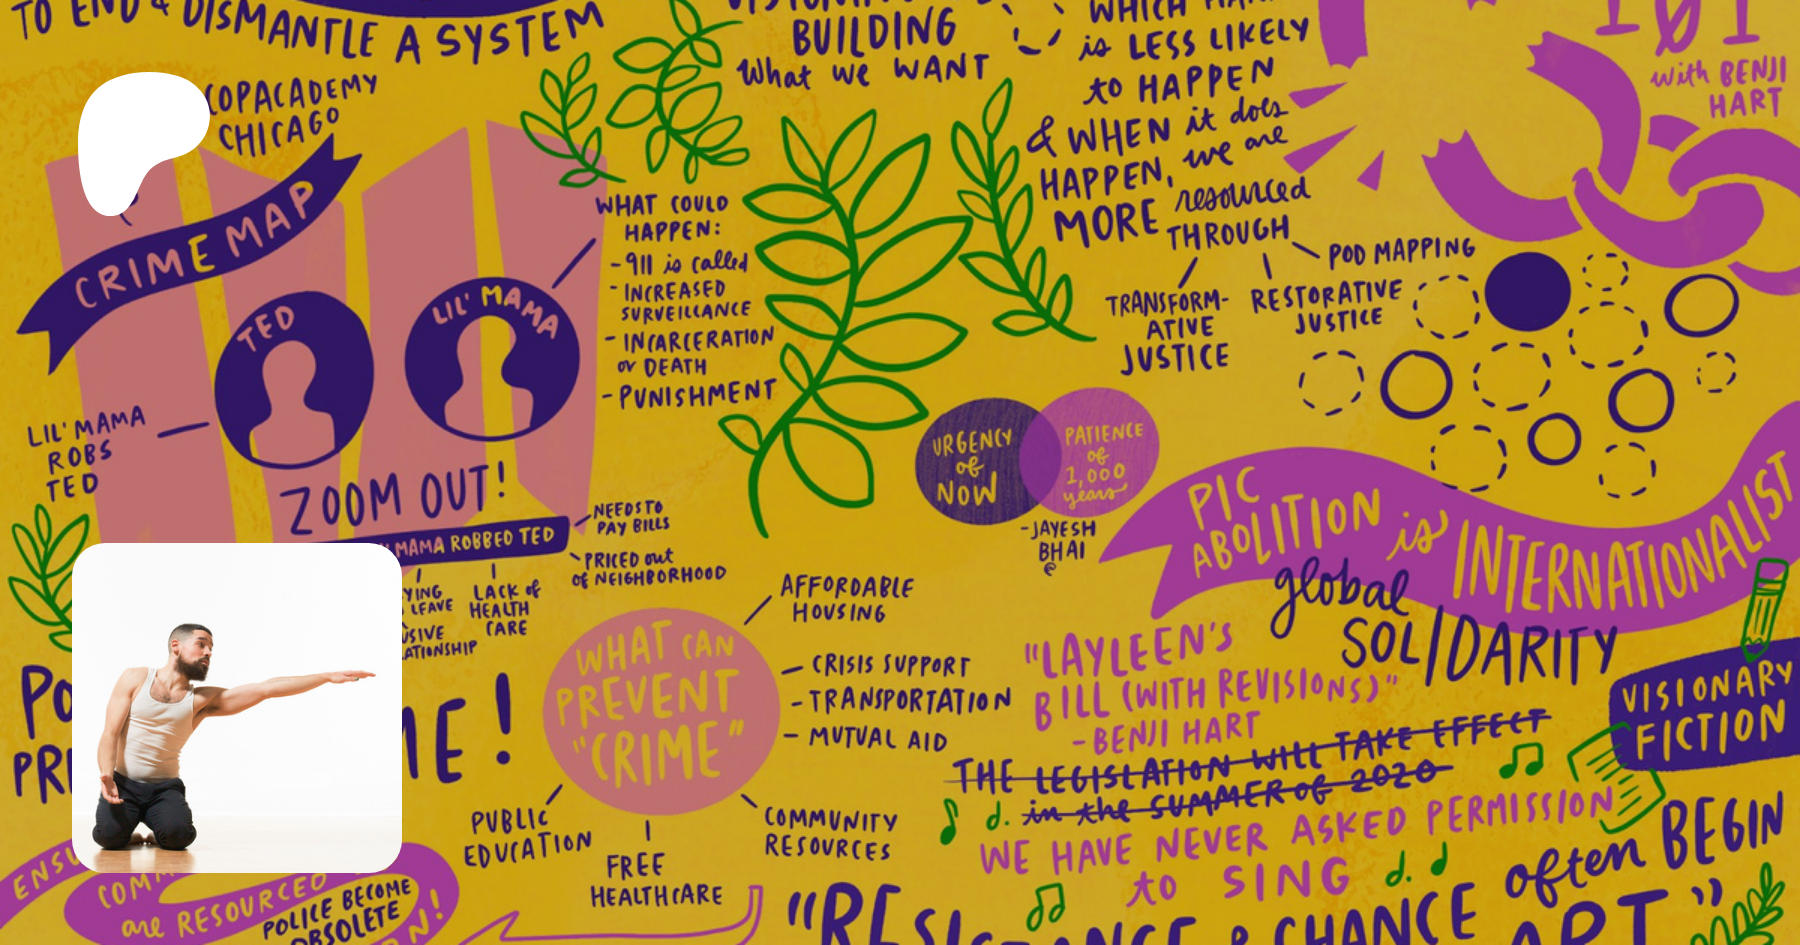 TO END & DISMANTLE A SYSTEM
#COPACADEMY
CHICAGO
CRIME MAP
TED
LIL' MAMA
LIL' MAMA
ROBS
TED
WHAT COULD
HAPPEN:
- 911 is called
- INCREASED
SURVEILLANCE
- INCARCERATION
or DEATH
- PUNISHMENT
ZOOM OUT!
MAMA ROBBED TED
NEEDS TO
PAY BILLS
PRICED out
of NEIGHBORHOOD
LACK of
HEALTH
CARE
LEAVE
BUILDING
What we WANT
WHICH
is LESS LIKELY
to HAPPEN
& WHEN it does
HAPPEN, we are
MORE resourced
THROUGH
TRANSFORM-
ATIVE
JUSTICE
RESTORATIVE
JUSTICE
POD MAPPING
101
with BENJI
HART
URGENCY
of
NOW
PATIENCE
of
1,000
years
-JAYESH
BHAI
PIC
ABOLITION is INTERNATIONALIST
global
SOLIDARITY
WHAT CAN
PREVENT
"CRIME"
AFFORDABLE
HOUSING
- CRISIS SUPPORT
- TRANSPORTATION
- MUTUAL AID
COMMUNITY
RESOURCES
FREE
HEALTHCARE
PUBLIC
EDUCATION
"LAYLEEN'S
BILL (WITH REVISIONS)"
-BENJI HART
THE LEGISLATION WILL TAKE EFFECT
in the SUMMER OF 2020
WE HAVE NEVER ASKED PERMISSION
to SING
VISIONARY
FICTION
"RESISTANCE & CHANCE often BEGIN
ART"
are RESOURCED
POLICE BECOME
OBSOLETE